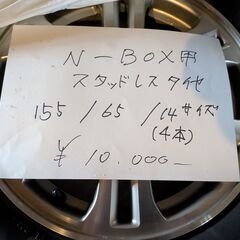 N-BOX用
スタッドレスタイヤ
155/65/14サイズ
(4本)
¥10.000-